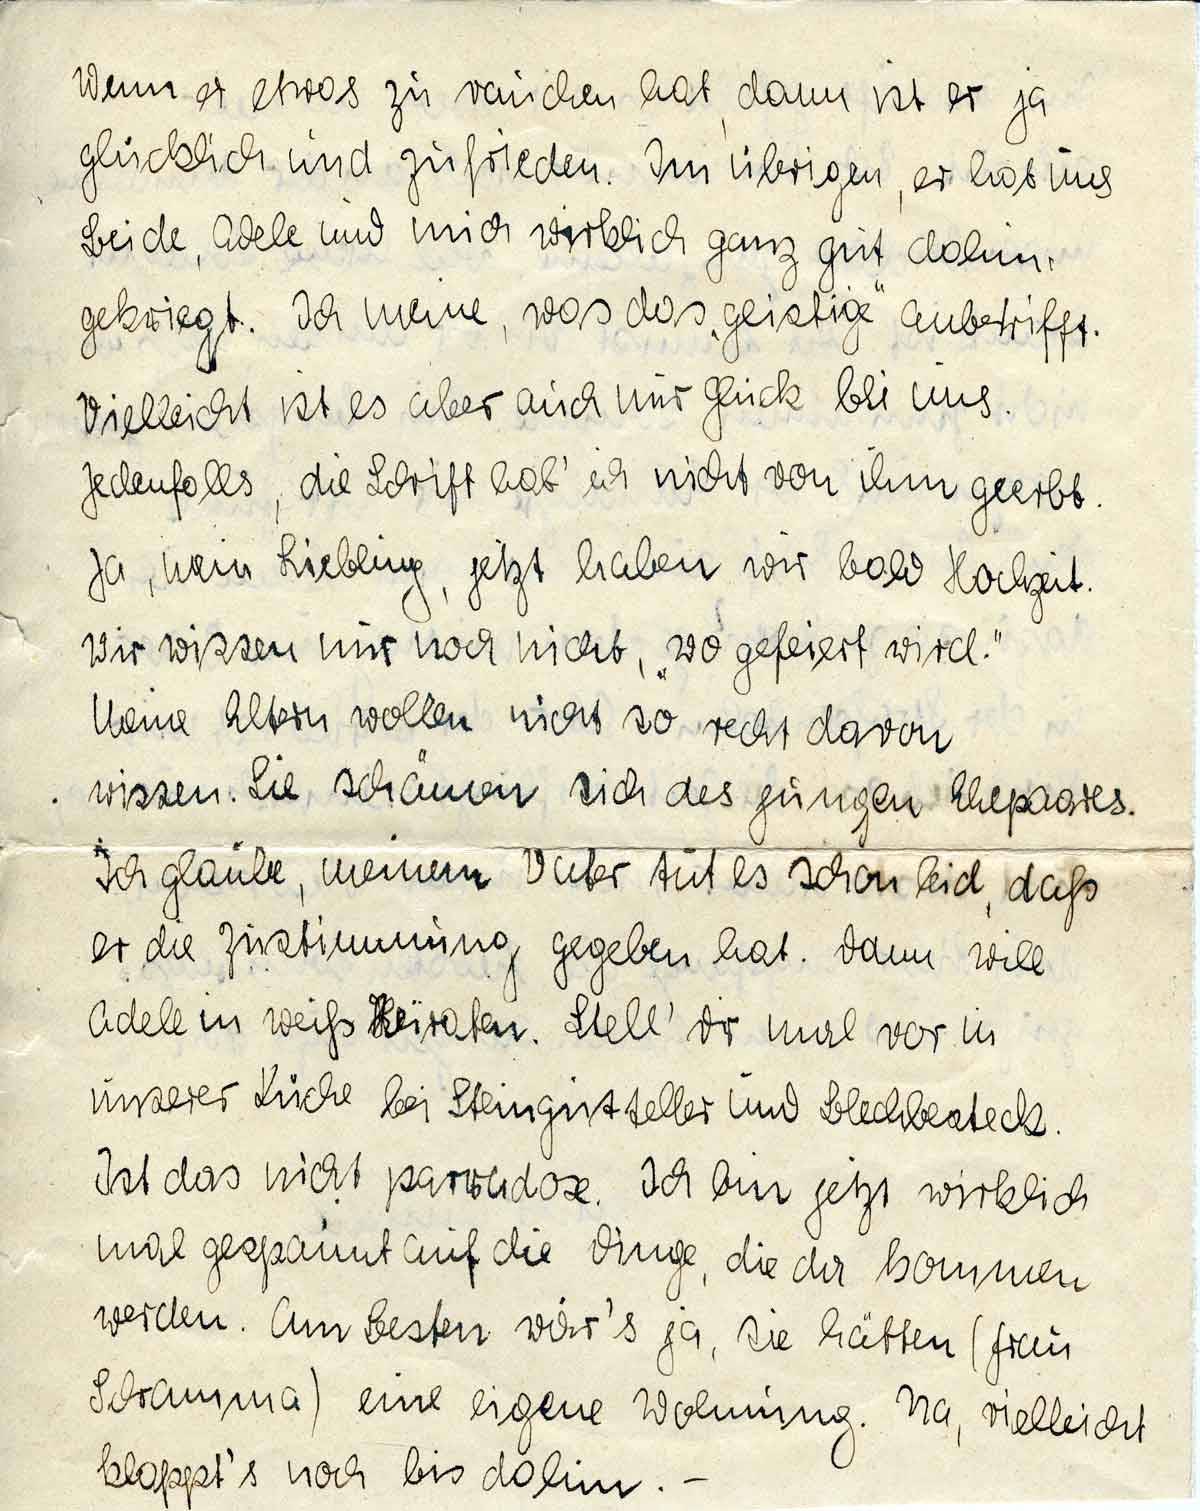 Wenn er etwas zu rauchen hat, dann ist er ja
glücklich und zufrieden. Im übrigen, er hat uns
beide, Adele und mich wirklich ganz gut dahin,
gekriegt. Ich meine, was das „geistige" anbetrifft.
Vielleicht ist es aber auch nur Glück bei uns.
Jedenfalls, die Schrift hab' ich nicht von ihm geerbt.
Ja, mein Liebling, jetzt haben wir bald Hochzeit.
Wir wissen nur noch nicht, „wo gefeiert wird."
Meine Eltern wollen nicht so recht davon
wissen. Sie schämen sich des jungen Ehepaares.
Ich glaube, meinem Vater tut es schon leid, daß
er die Zustimmung gegeben hat. Dann will
Adele in weiß heiraten. Stell' Dir mal vor in
unserer Küche bei Steingutteller und Blechbesteck.
Ist das nicht paradox. Ich bin jetzt wirklich
mal gespannt auf die Dinge, die da kommen
werden. Am besten wär's ja, sie hätten (Frau
Schramma) eine eigene Wohnung. Na, vielleicht
klappt's noch bis dahin. –